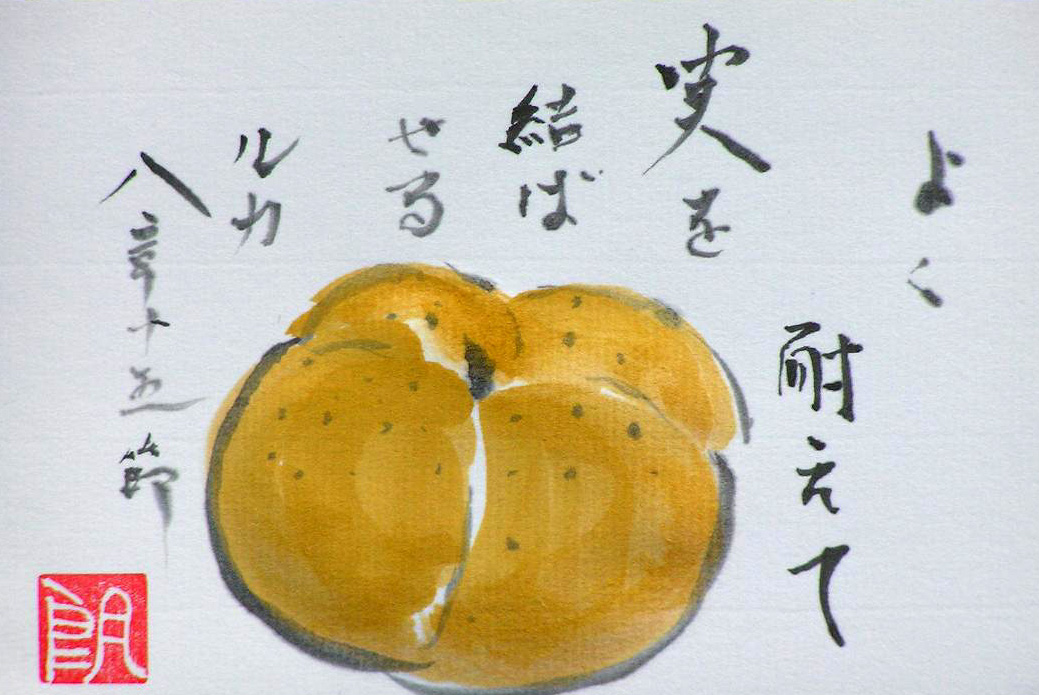 よく
耐えて
実を
結ば
せる
ルカ
八章十五節
朗